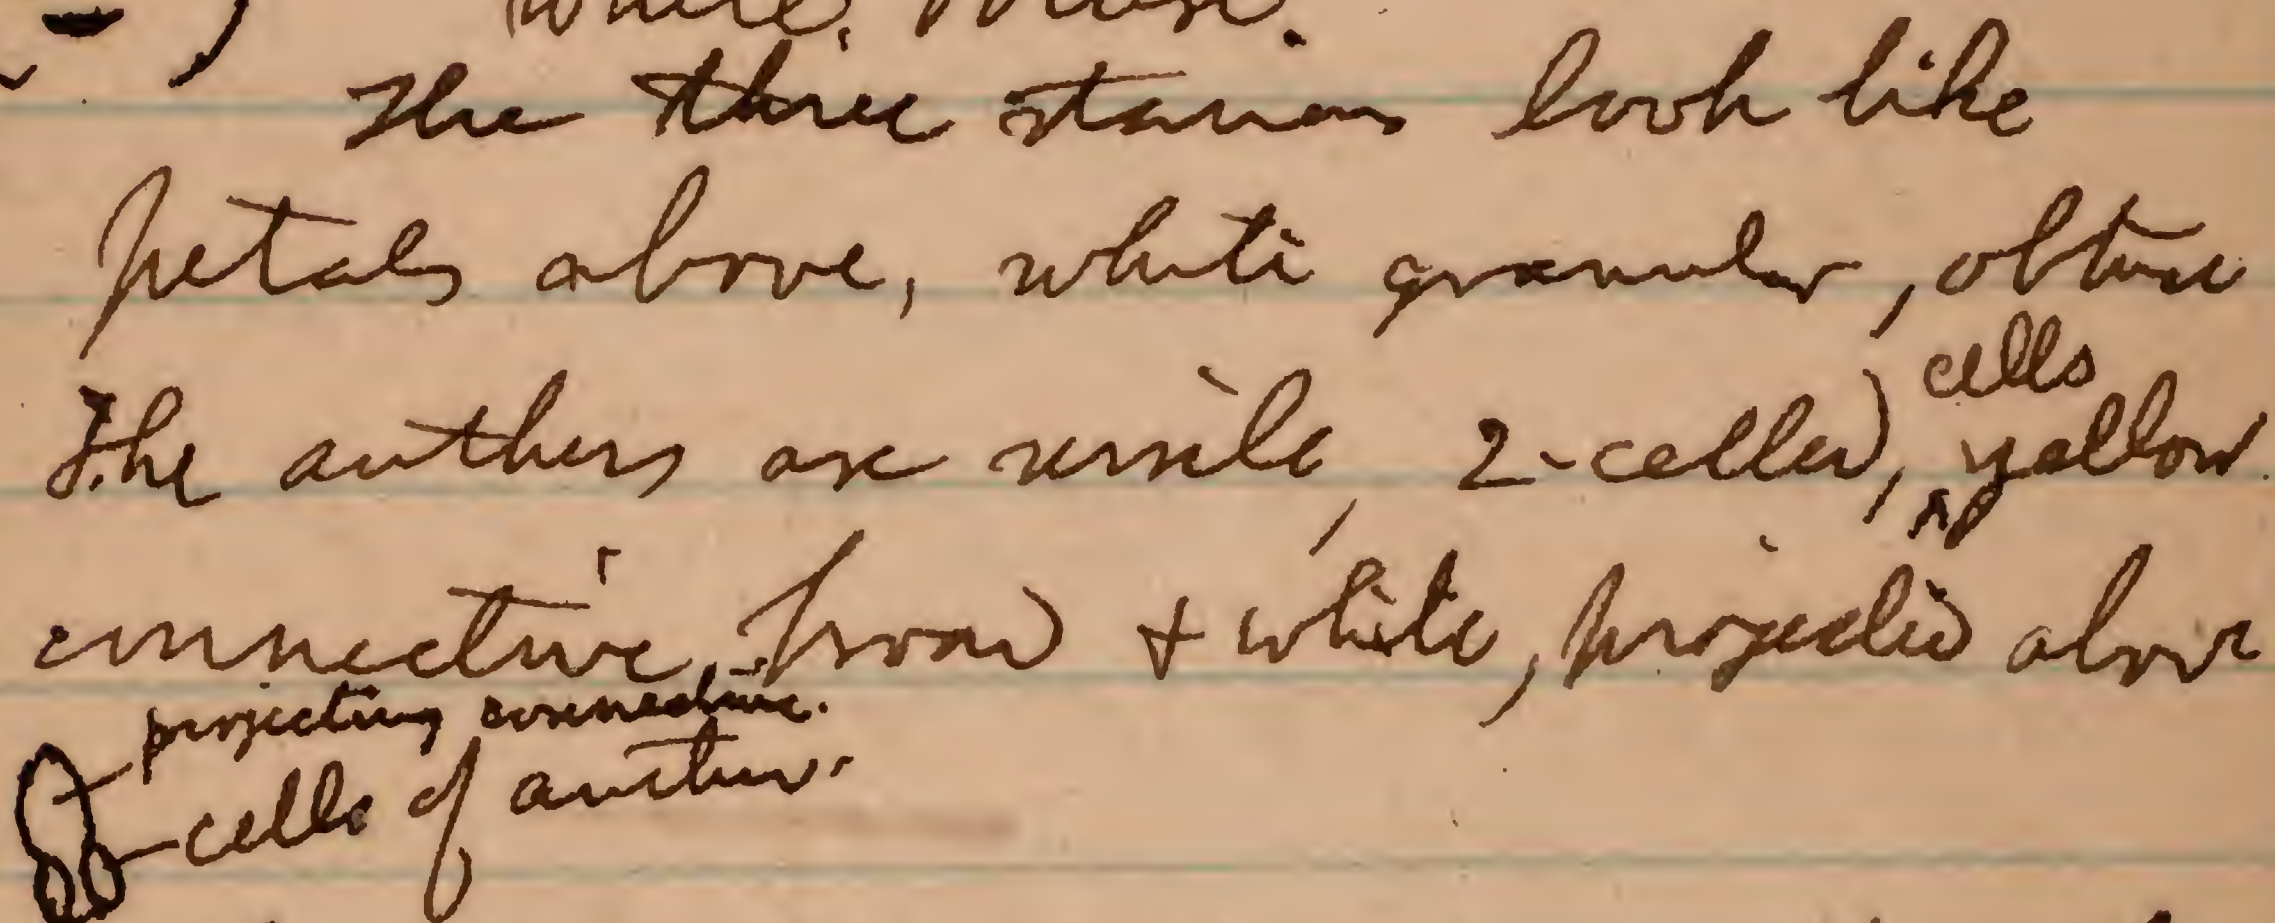 white,
The three stamens look like
petals above, white granular, obtuse
The anthers are sessile, 2-celled, cells yellow
connective, broad & white, projected above
projecting connective.
cells of anther.